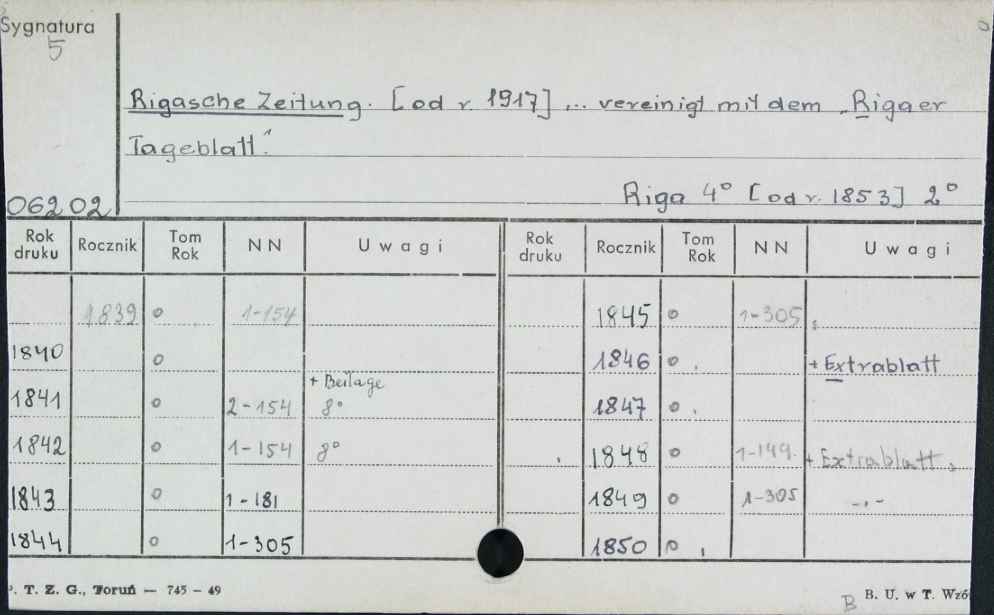 Sygnatura
5
Rigasche Zeitung. [od r. 1917] ... vereinigt mit dem „Rigaer
Tageblatt".
Riga 4° [od r. 1853] 2°
06202
Rok druku Rocznik Tom Rok NN Uwagi Rok druku Rocznik Tom Rok NN Uwagi
1839 o 1-154 1845 o 1-305
1840 o 1846 o + Extrablatt
+ Beilage
1841 o 2-154 8° 1847 o
1842 o 1-154 8° 1848 o 1-149. + Extrablatt
1843 o 1-181 1849 o 1-305 -„-
1844 o 1-305 1850 o
P. T. Z. G., Toruń — 745 - 49
B B. U. w T. Wzó